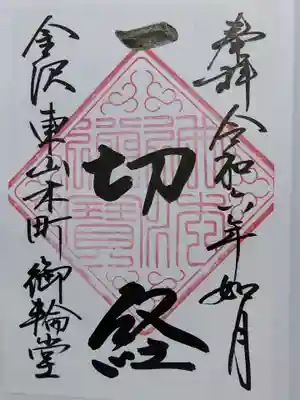 奉拝 令和六年如月
一切経
金沢 東山木町 御輪堂